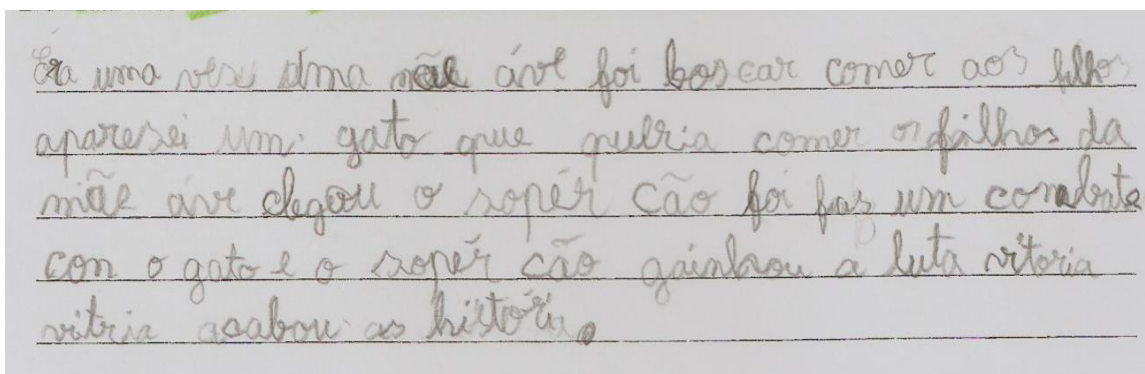 Era uma vesu uma mãe áve foi boscar comer aos filhos
aparesei um gato que queria comer os filhos da
mãe áve chegou o sopér cão foi faz um combate
con o gato e o sopér cão gainhou a luta vitoria
vitria acabou as história